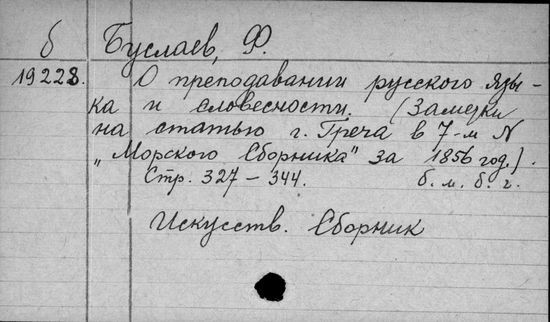 б Буслаев, Ф.
19228. О преподавании русского язы-
ка и словесности. (Заметки
на статью г. Греча в 7-м N
„Морского Сборника" за 1856 год.).
Стр. 327 – 344. б. м. б. г.
Искусств. Сборник